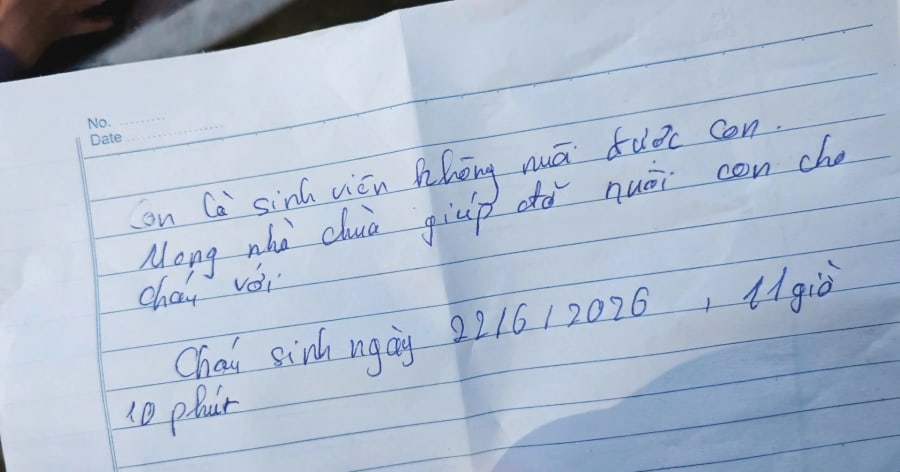 No. ............
Date ........................
Con là sinh viên không nuôi được con.
Mong nhà chùa giúp đỡ nuôi con cho
cháu với
Cháu sinh ngày 22/6/2026, 11 giờ
10 phút